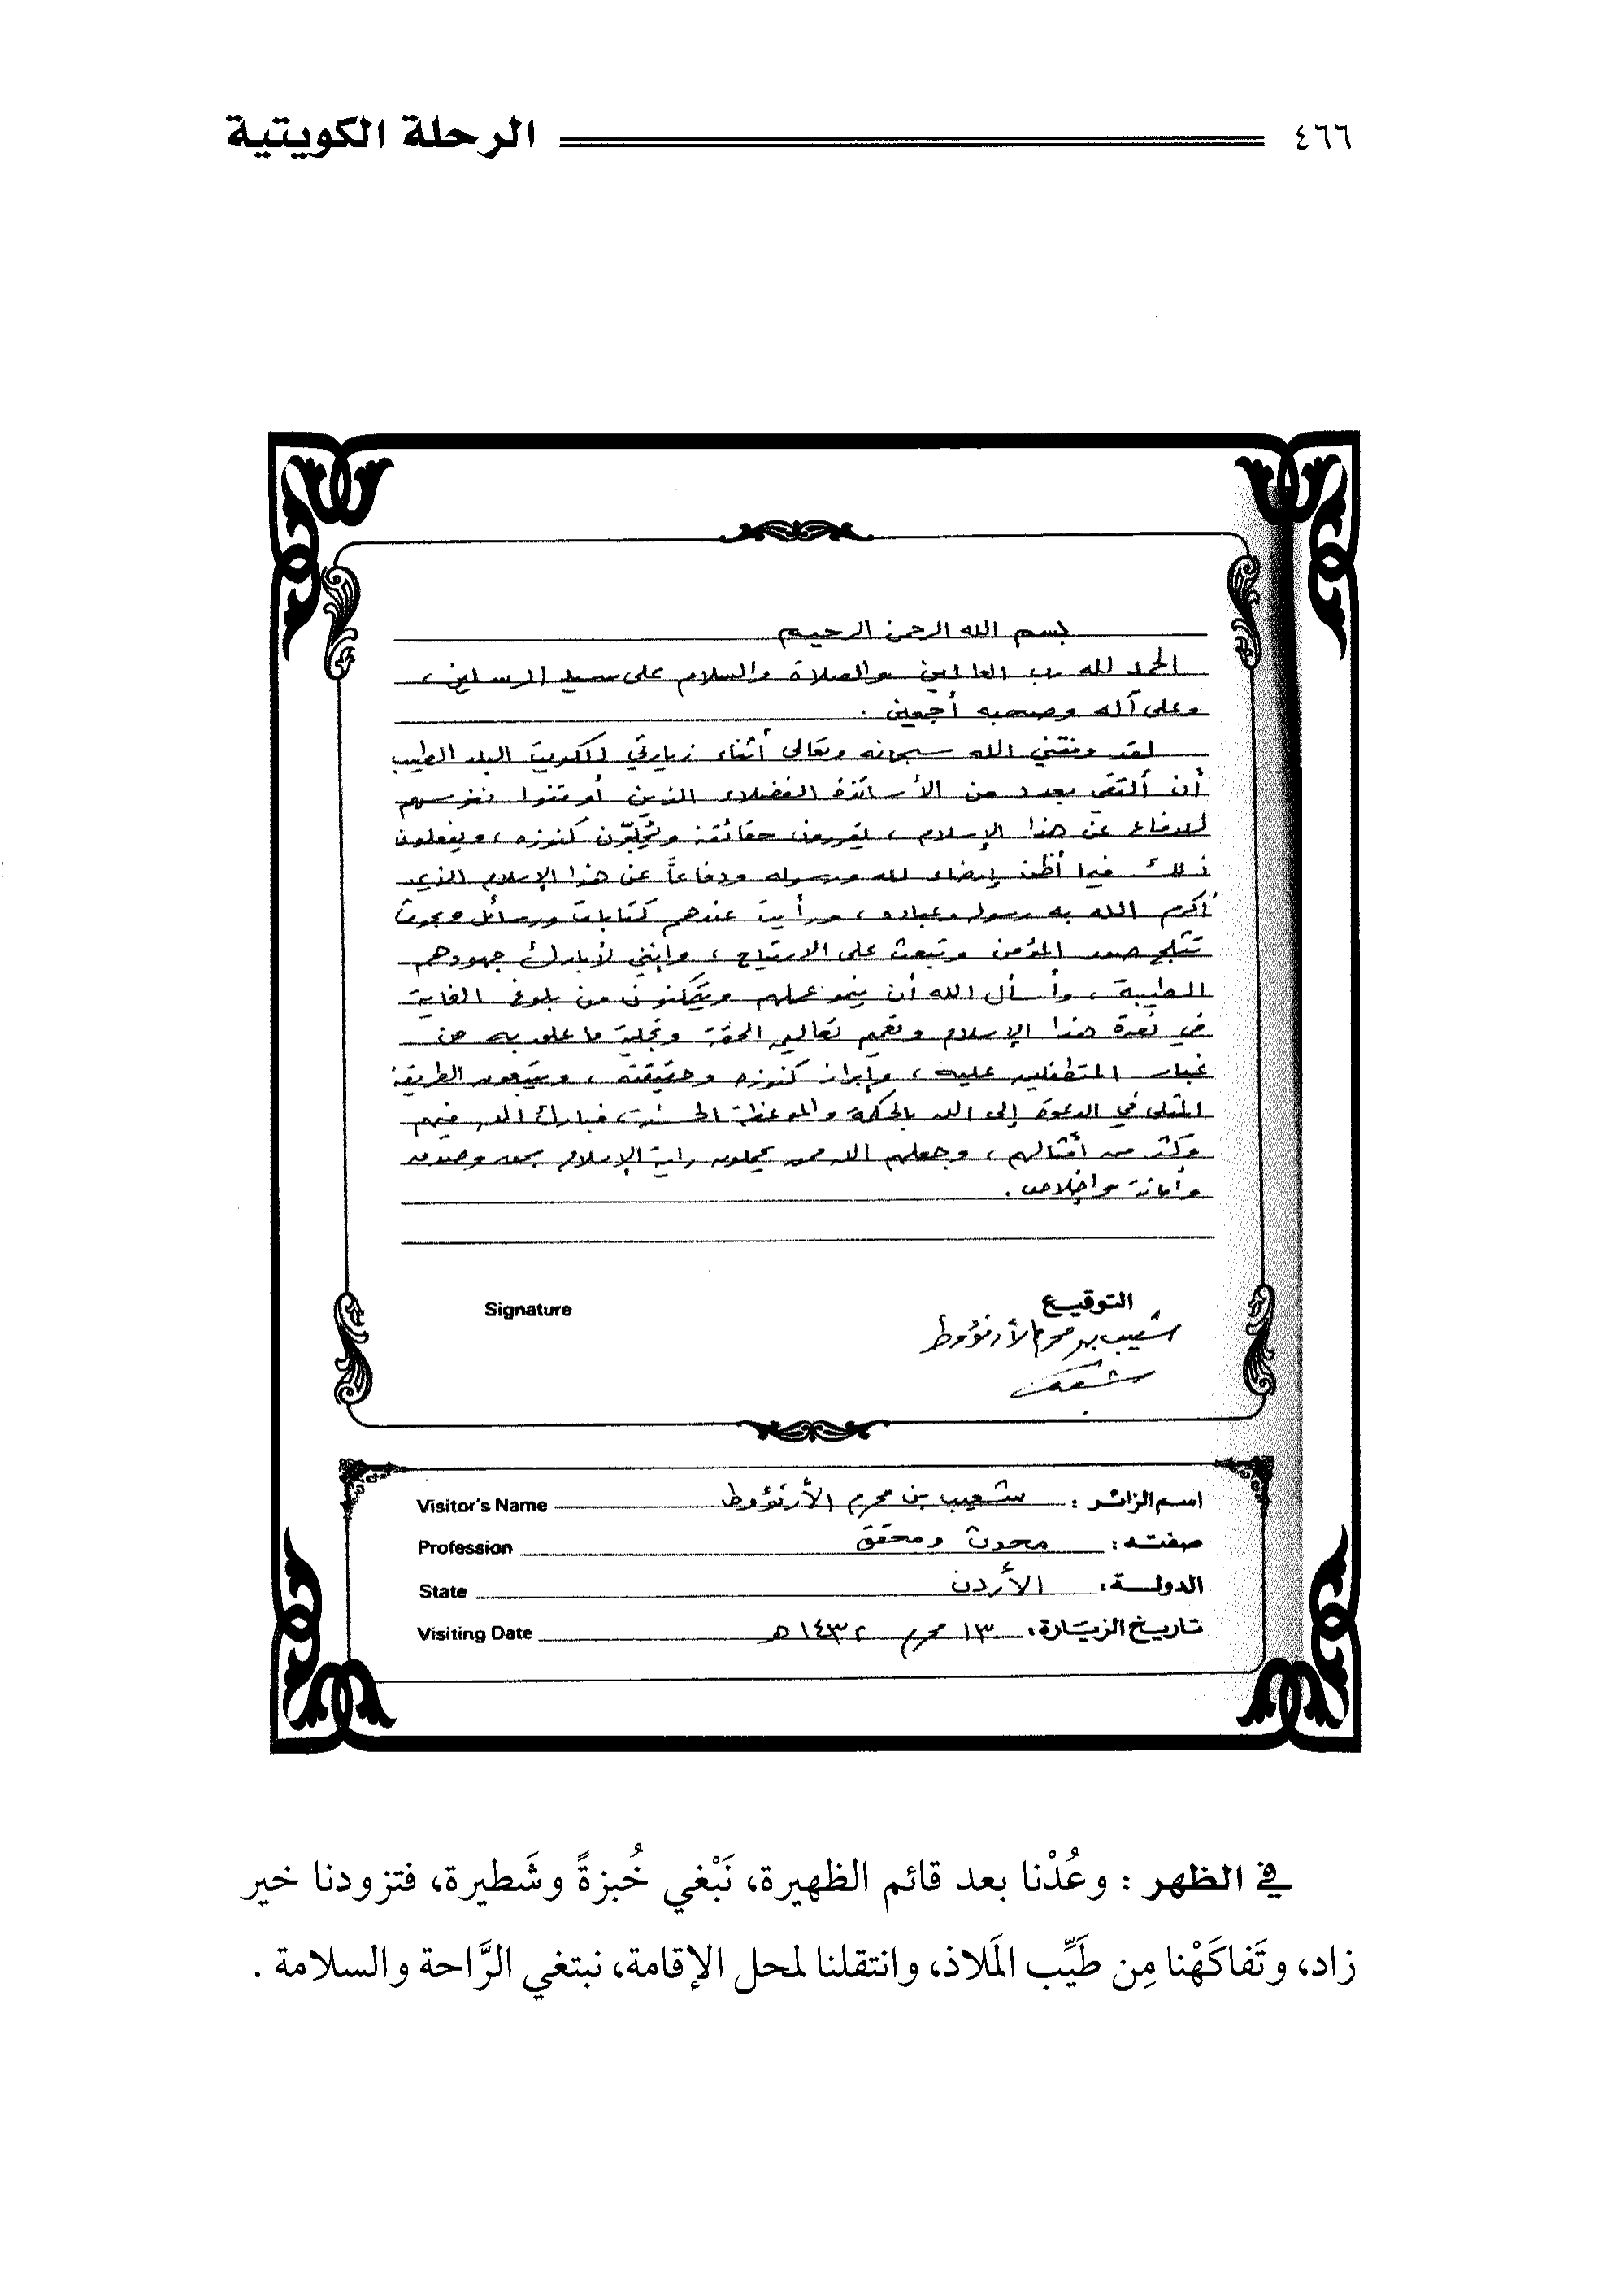 ٤٦٦ الرحلة الكويتية
بسم الله الرحمن الرحيم
الحمد لله رب العالمين والصلاة والسلام على سيد المرسلين،
وعلى آله وصحبه أجمعين .
لقد وفقني الله سبحانه وتعالى أثناء زيارتي للكويت البلد الطيب
أن ألتقي بعدد من الأساتذة الفضلاء الذين أوقفوا نفوسهم
للدفاع عن هذا الإسلام، يقررون حقائقه ويُجلّون كنوزه، ويفعلون
ذلك فيما أظن إرضاء لله ورسوله ودفاعاً عن هذا الإسلام الذي
أكرم الله به رسوله وعباده، ورأيت عندهم كتابات ورسائل وبحوث
تثلج صدر المؤمن وتبعث على الارتياح، وإنني لأبارك جهودهم
الطيبة، وأسأل الله أن ينمو عملهم ويتمكنون من بلوغ الغاية
في نصرة هذا الإسلام وتعميم تعاليمه الحقة وتجلية ما علق به من
غبار المتطفلين عليه، وإبراز كنوزه وحقيقته، ويتبعون الطريقة
المثلى في الدعوة إلى الله بالحكمة والموعظة الحسنة، فبارك الله فيهم
وكثر من أمثالهم، وجعلهم الله ممن يحملون راية الإسلام بحق وصدق
وأمانة وإخلاص .
التوقيع Signature
شعيب بن محرم الأرنؤوط
اسم الزائر : شعيب بن محرم الأرنؤوط Visitor's Name
صفته : محدث ومحقق Profession
الدولة : الأردن State
تاريخ الزيارة : ١٣ محرم ١٤٣٢ هـ Visiting Date
في الظهر : وعُدْنا بعد قائم الظهيرة، نَبْغي خُبزةً وشَطيرة، فتزودنا خير
زاد، وتَفاكَهْنا مِن طَيِّب المَلاذ، وانتقلنا لمحل الإقامة، نبتغي الرَّاحة والسلامة .